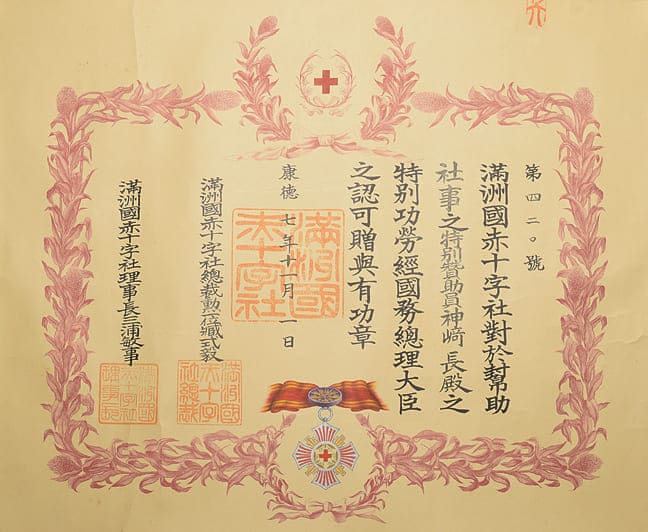 第四二〇號
滿洲國赤十字社對於封幫助
社事之特別贊助員神﨑 長殿之
特別功勞經國務總理大臣
之認可贈與有功章
康德七年十一月 一日
滿洲國赤十字社
滿洲國赤十字社總裁勲一位臧式毅
滿洲國赤十字社總裁
滿洲國赤十字社理事長三浦敏事
滿洲國赤十字社理事長